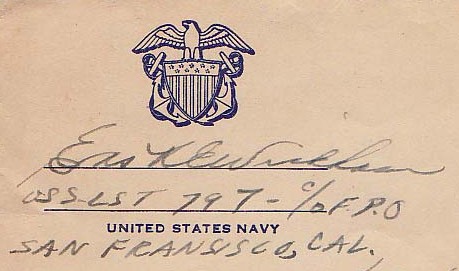 Ens
USS-LST 797- c/o F.P.O
UNITED STATES NAVY
SAN FRANSISCO, CAL.